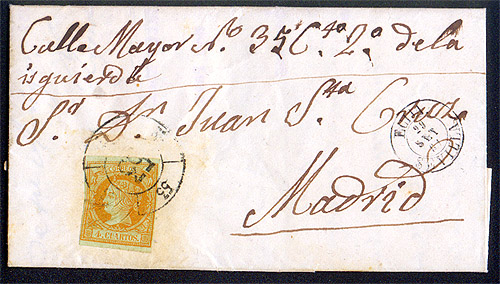 Calle Mayor Nº 35 Cto 2º de la
izquierda
Sr Dn Juan Sta Cruz
Madrid
53
SET
4 CUARTOS.